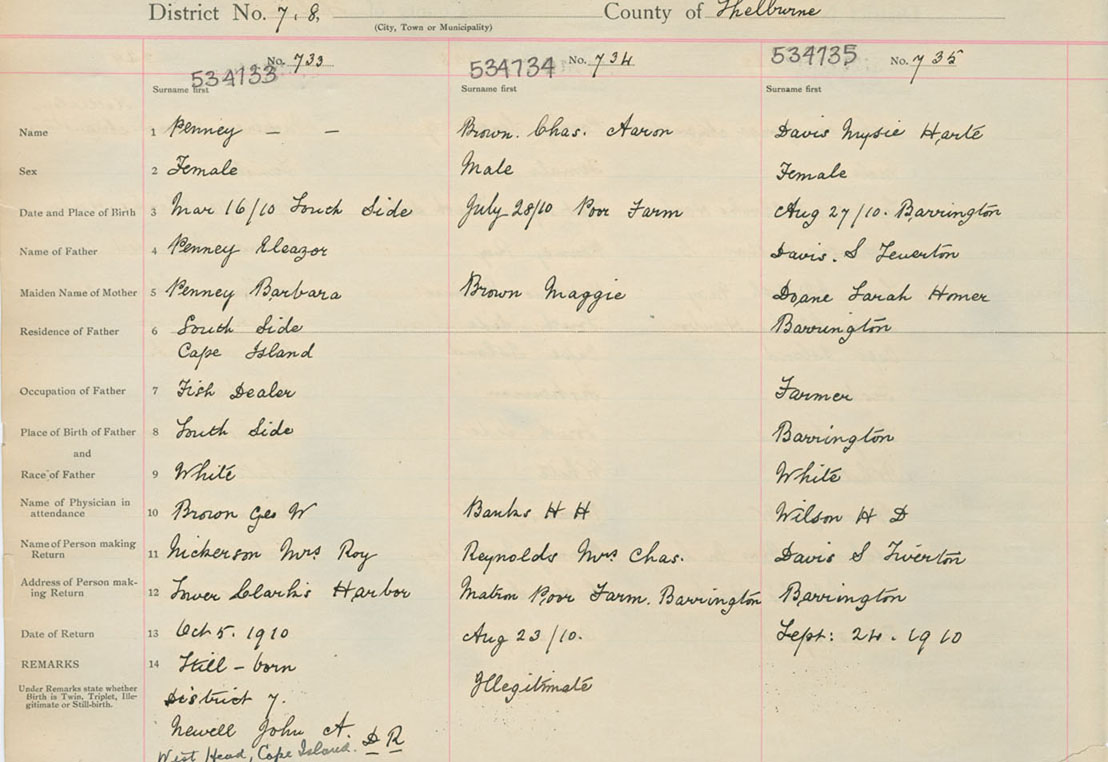 District No. 7.8. County of Shelburne
(City, Town or Municipality)
534733 No. 733 534734 No. 734 534735 No. 735
Surname first Surname first Surname first
Name 1 Penney — — Brown. Chas. Aaron Davis Mysie Harte
Sex 2 Female Male Female
Date and Place of Birth 3 Mar 16/10 South Side July 28/10 Poor Farm Aug 27/10. Barrington
Name of Father 4 Penney Eleazor Davis. S Teverton
Maiden Name of Mother 5 Penney Barbara Brown Maggie Doane Sarah Homer
Residence of Father 6 South Side Barrington
Cape Island
Occupation of Father 7 Fish Dealer Farmer
Place of Birth of Father 8 South Side Barrington
and
Race of Father 9 White White
Name of Physician in
attendance 10 Brown Geo W Banks H H Wilson H D
Name of Person making
Return 11 Nickerson Mrs Roy Reynolds Mrs Chas. Davis S Tiverton
Address of Person mak-
ing Return 12 Lower Clark's Harbor Matron Poor Farm. Barrington Barrington
Date of Return 13 Oct 5. 1910 Aug 23/10. Sept: 24. 1910
REMARKS 14 Still-born
Under Remarks state whether
Birth is Twin, Triplet, Ille-
gitimate or Still-birth.
District 7. Illegitimate
Newell John A. D R
West Head, Cape Island.